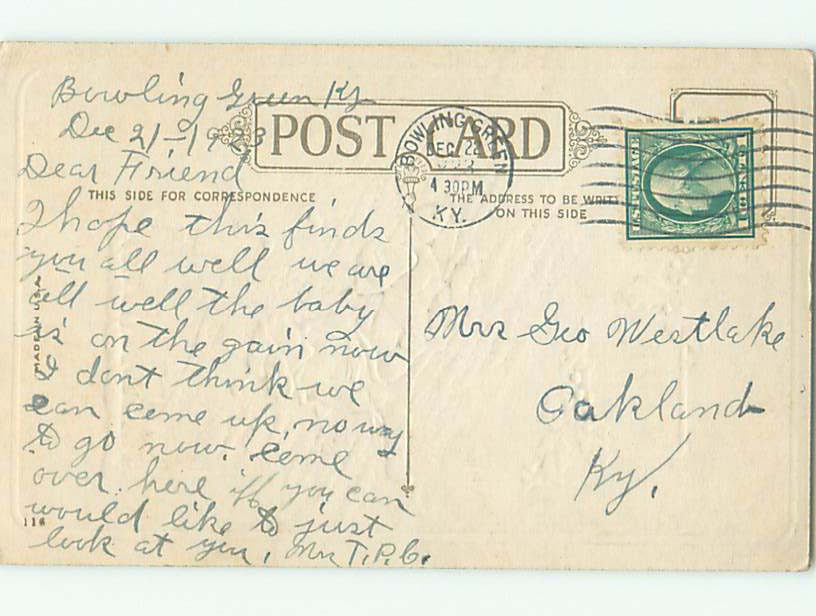 Bowling Green Ky
Dec 21-19
POST CARD
Dear Friend
THIS SIDE FOR CORRESPONDENCE
I hope this finds
you all well we are
all well the baby
is on the gain now
I dont think we
can come up, no way
to go now. come
over here if you can
would like to just
look at you, Mrs T.P.C.
MADE IN U.S.A.
118
BOWLING GREEN
DEC 2
4 30 PM
KY.
THE ADDRESS TO BE WRIT
ON THIS SIDE
U.S. POSTAGE
1 CENT 1
Mrs Geo Westlake
Oakland
Ky.